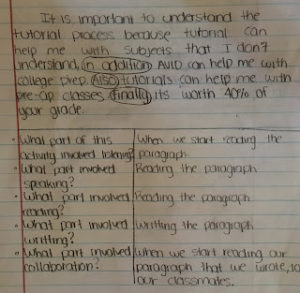 It is important to understand the
tutorial process because tutorial can
help me with subjects that I don't
understand, in addition AVID can help me with
college prep. Also tutorials can help me with
pre-ap classes. Finally its worth 40% of
your grade.
• What part of this activity involved listening?
When we start reading the paragraph
• What part involved speaking?
Reading the paragraph
• What part involved reading?
Reading the paragraph
• What part involved writting?
Writting the paragraph
• What part involved collaboration?
When we start reading our paragraph that we wrote, to our classmates.